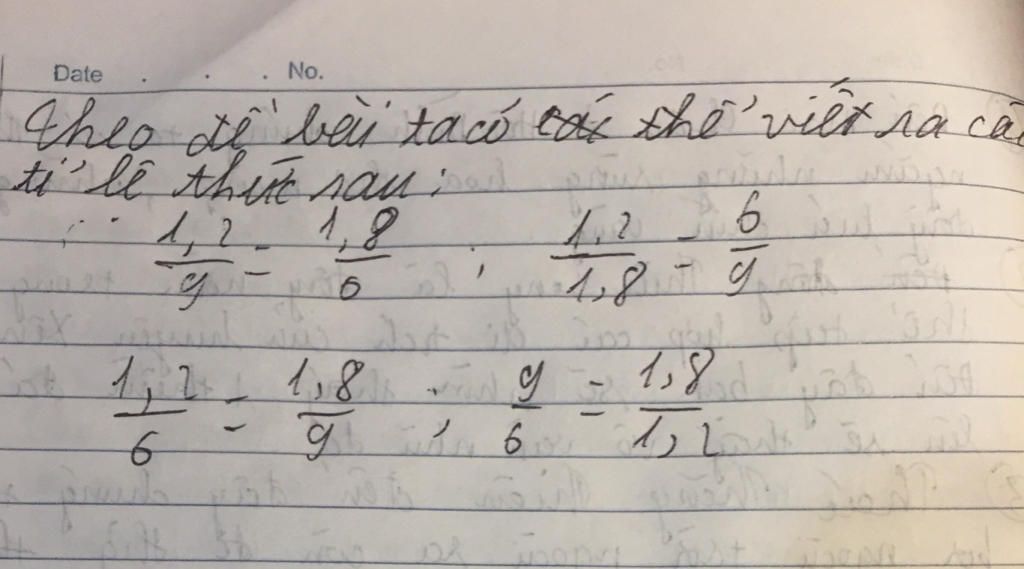 Date . . . No.
theo đề bài ta có các thể viết ra
tỉ lệ thức sau:
1,2/9 = 1,8/6 ; 1,2/1,8 = 6/9
1,2/6 = 1,8/9 ; 9/6 = 1,8/1,2